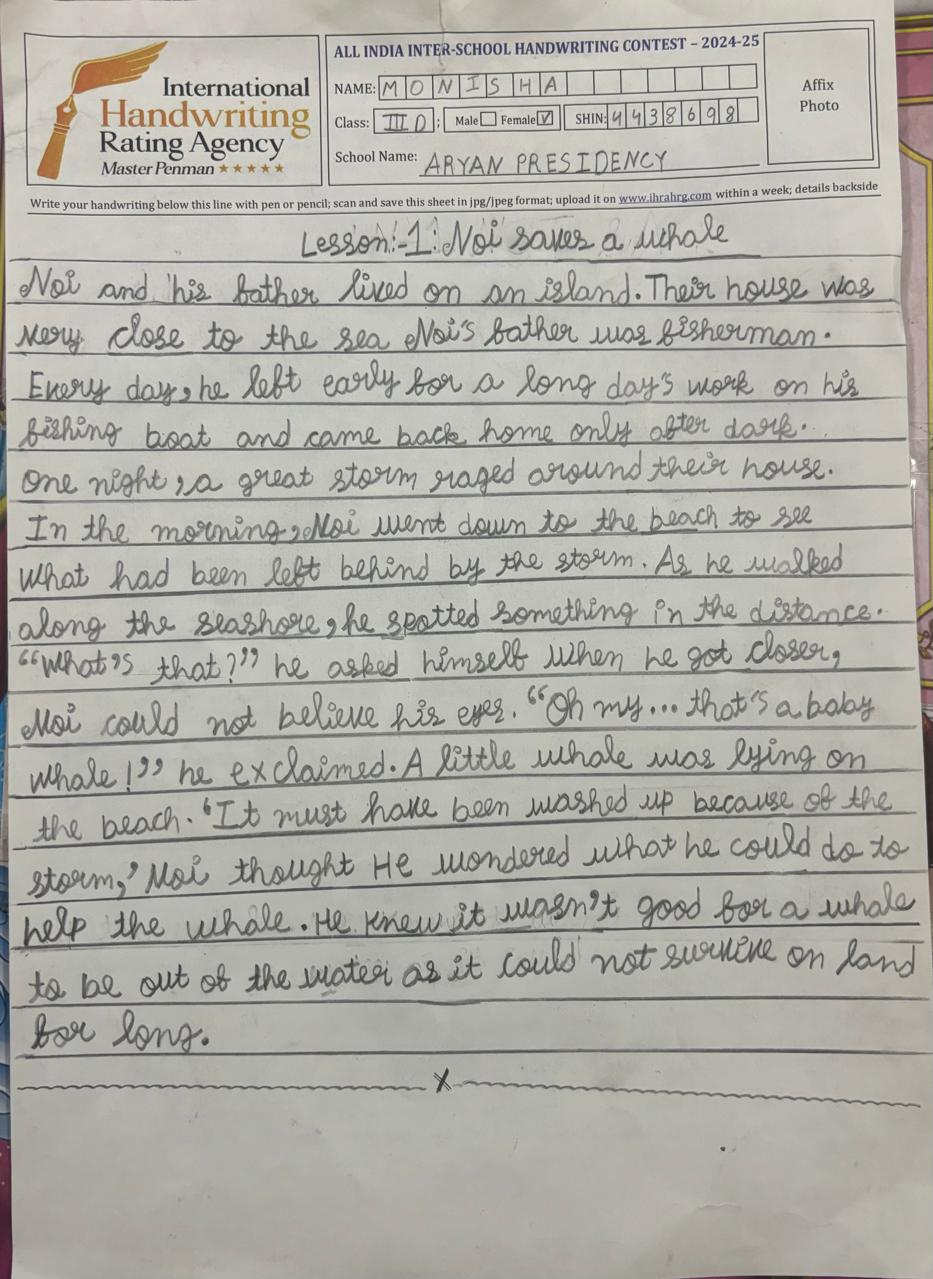 International
Handwriting
Rating Agency
Master Penman ★★★★★
ALL INDIA INTER-SCHOOL HANDWRITING CONTEST – 2024-25
NAME: MONISHA
Class: III D ; Male Female ✓ SHIN: 4438698
School Name: ARYAN PRESIDENCY
Affix
Photo
Write your handwriting below this line with pen or pencil; scan and save this sheet in jpg/jpeg format; upload it on www.ihrahrg.com within a week; details backside
Lesson:-1: Noi saves a whale
Noi and his father lived on an island. Their house was
very close to the sea Noi's father was fisherman.
Every day, he left early for a long day's work on his
fishing boat and came back home only after dark.
One night, a great storm raged around their house.
In the morning, Noi went down to the beach to see
what had been left behind by the storm. As he walked
along the seashore, he spotted something in the distance.
“What's that?” he asked himself when he got closer,
Noi could not believe his eyes. “Oh my... that's a baby
whale!” he exclaimed. A little whale was lying on
the beach. ‘It must have been washed up because of the
storm,’ Noi thought He wondered what he could do to
help the whale. He knew it wasn't good for a whale
to be out of the water as it could not survive on land
for long.
x